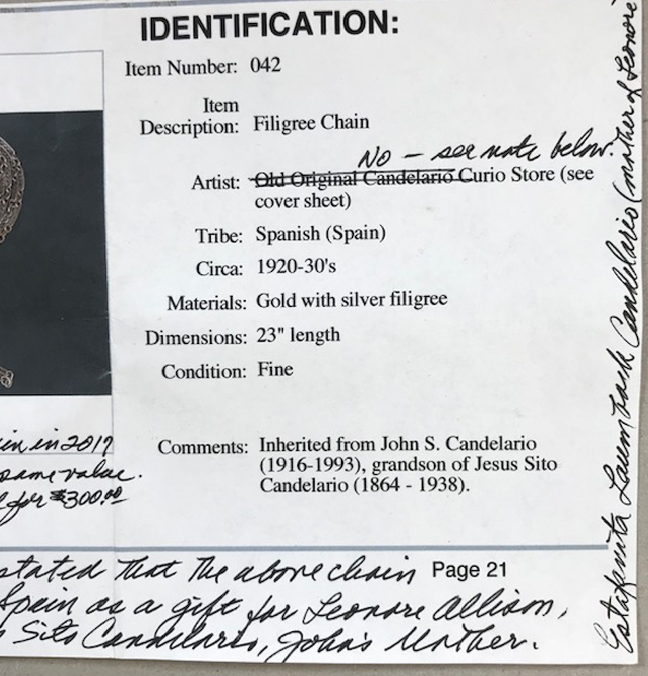 IDENTIFICATION:
Item Number: 042
Item
Description: Filigree Chain
No – see note below.
Artist: Old Original Candelario Curio Store (see
cover sheet)
Tribe: Spanish (Spain)
Circa: 1920-30's
Materials: Gold with silver filigree
Dimensions: 23" length
Condition: Fine
in in 2017
same value.
for $300.00
Comments: Inherited from John S. Candelario
(1916-1993), grandson of Jesus Sito
Candelario (1864 - 1938).
stated that the above chain Page 21
Spain as a gift for Leonore Allison,
Sito Candelario, John's Mother.
Candelario (mother of Leonore